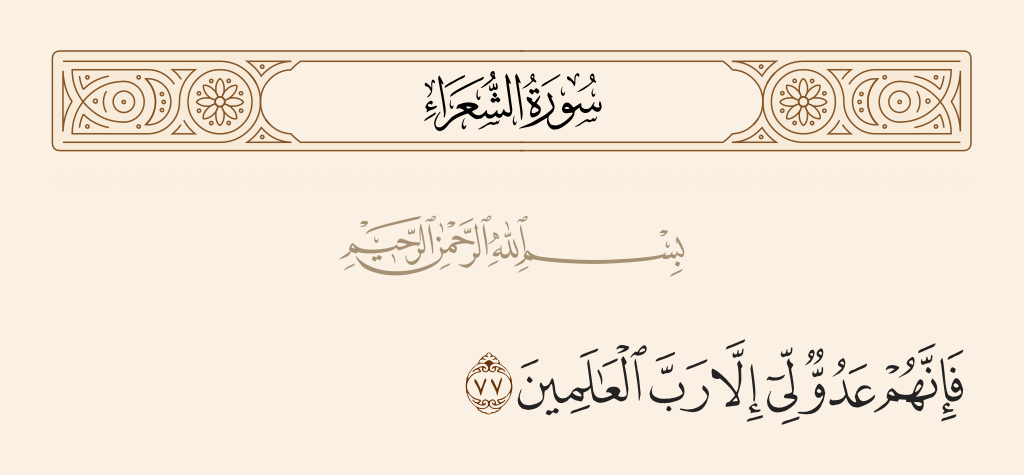 سُورَةُ الشُّعَرَاءِ
بِسْمِ ٱللَّهِ ٱلرَّحْمَٰنِ ٱلرَّحِيمِ
فَإِنَّهُمْ عَدُوٌّ لِّىٓ إِلَّا رَبَّ ٱلْعَٰلَمِينَ ٧٧